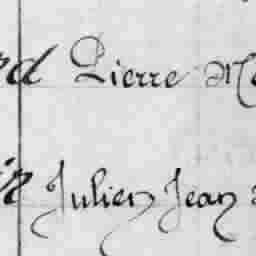 Pierre
Julien Jean